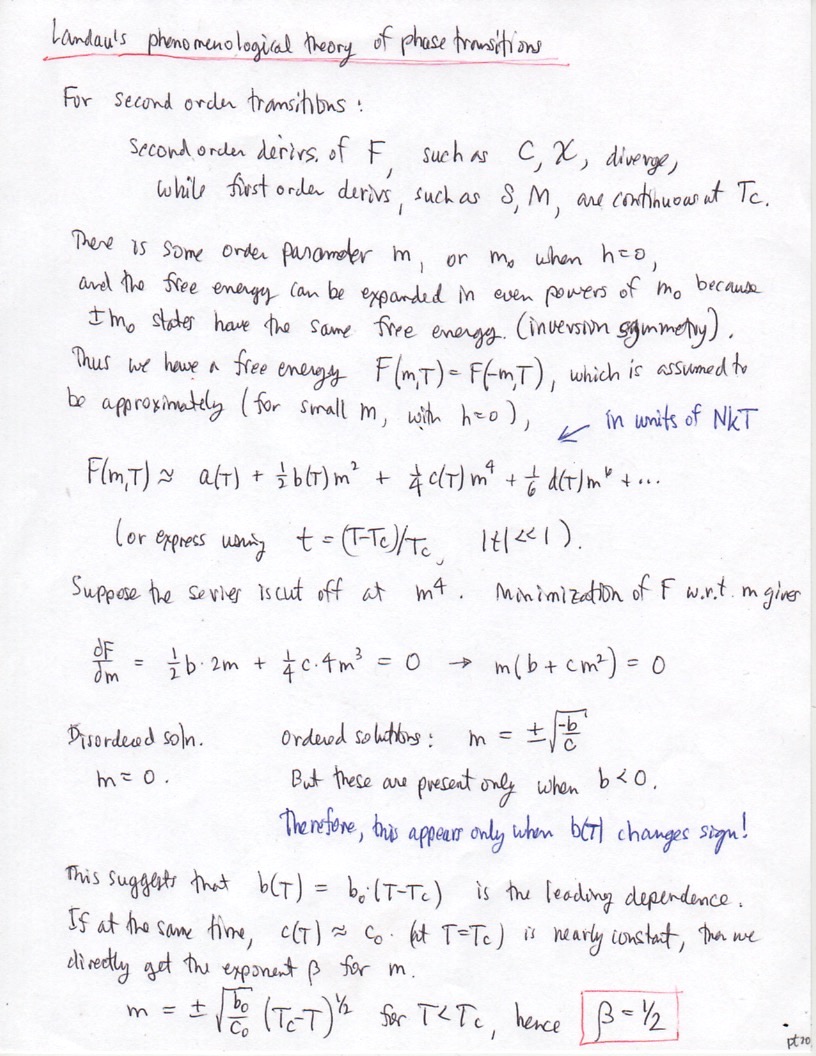 Landau's phenomenological theory of phase transitions
For second order transitions:
Second order derivs. of F, such as C, χ, diverge,
while first order derivs, such as S, M, are continuous at Tc.
There is some order parameter m, or m₀ when h=0,
and the free energy can be expanded in even powers of m₀ because
±m₀ states have the same free energy. (inversion symmetry).
Thus we have a free energy F(m,T) = F(-m,T), which is assumed to
be approximately (for small m, with h=0),
in units of NkT
F(m,T) ≈ a(T) + ½ b(T) m² + ¼ c(T) m⁴ + ⅙ d(T) m⁶ + ...
(or express using t = (T-Tc)/Tc, |t| << 1).
Suppose the series is cut off at m⁴. Minimization of F w.r.t. m gives
∂F/∂m = ½ b·2m + ¼ c·4m³ = 0 → m(b + cm²) = 0
Disordered soln. Ordered solutions: m = ±√(-b/c)
m = 0. But these are present only when b<0.
Therefore, this appears only when b(T) changes sign!
This suggests that b(T) = b₀·(T-Tc) is the leading dependence.
If at the same time, c(T) ≈ c₀. (at T=Tc) is nearly constant, then we
directly get the exponent β for m.
m = ±√(b₀/c₀) (Tc-T)^½ for T<Tc, hence β = ½
pt20